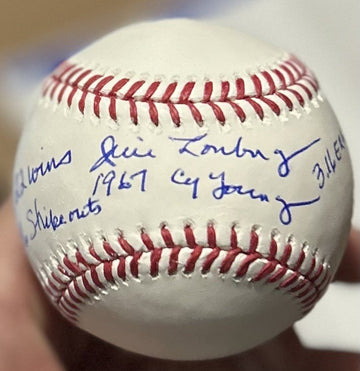 22 wins
Strikeouts
Jim Lonborg
1967 Cy Young
3.16 ERA